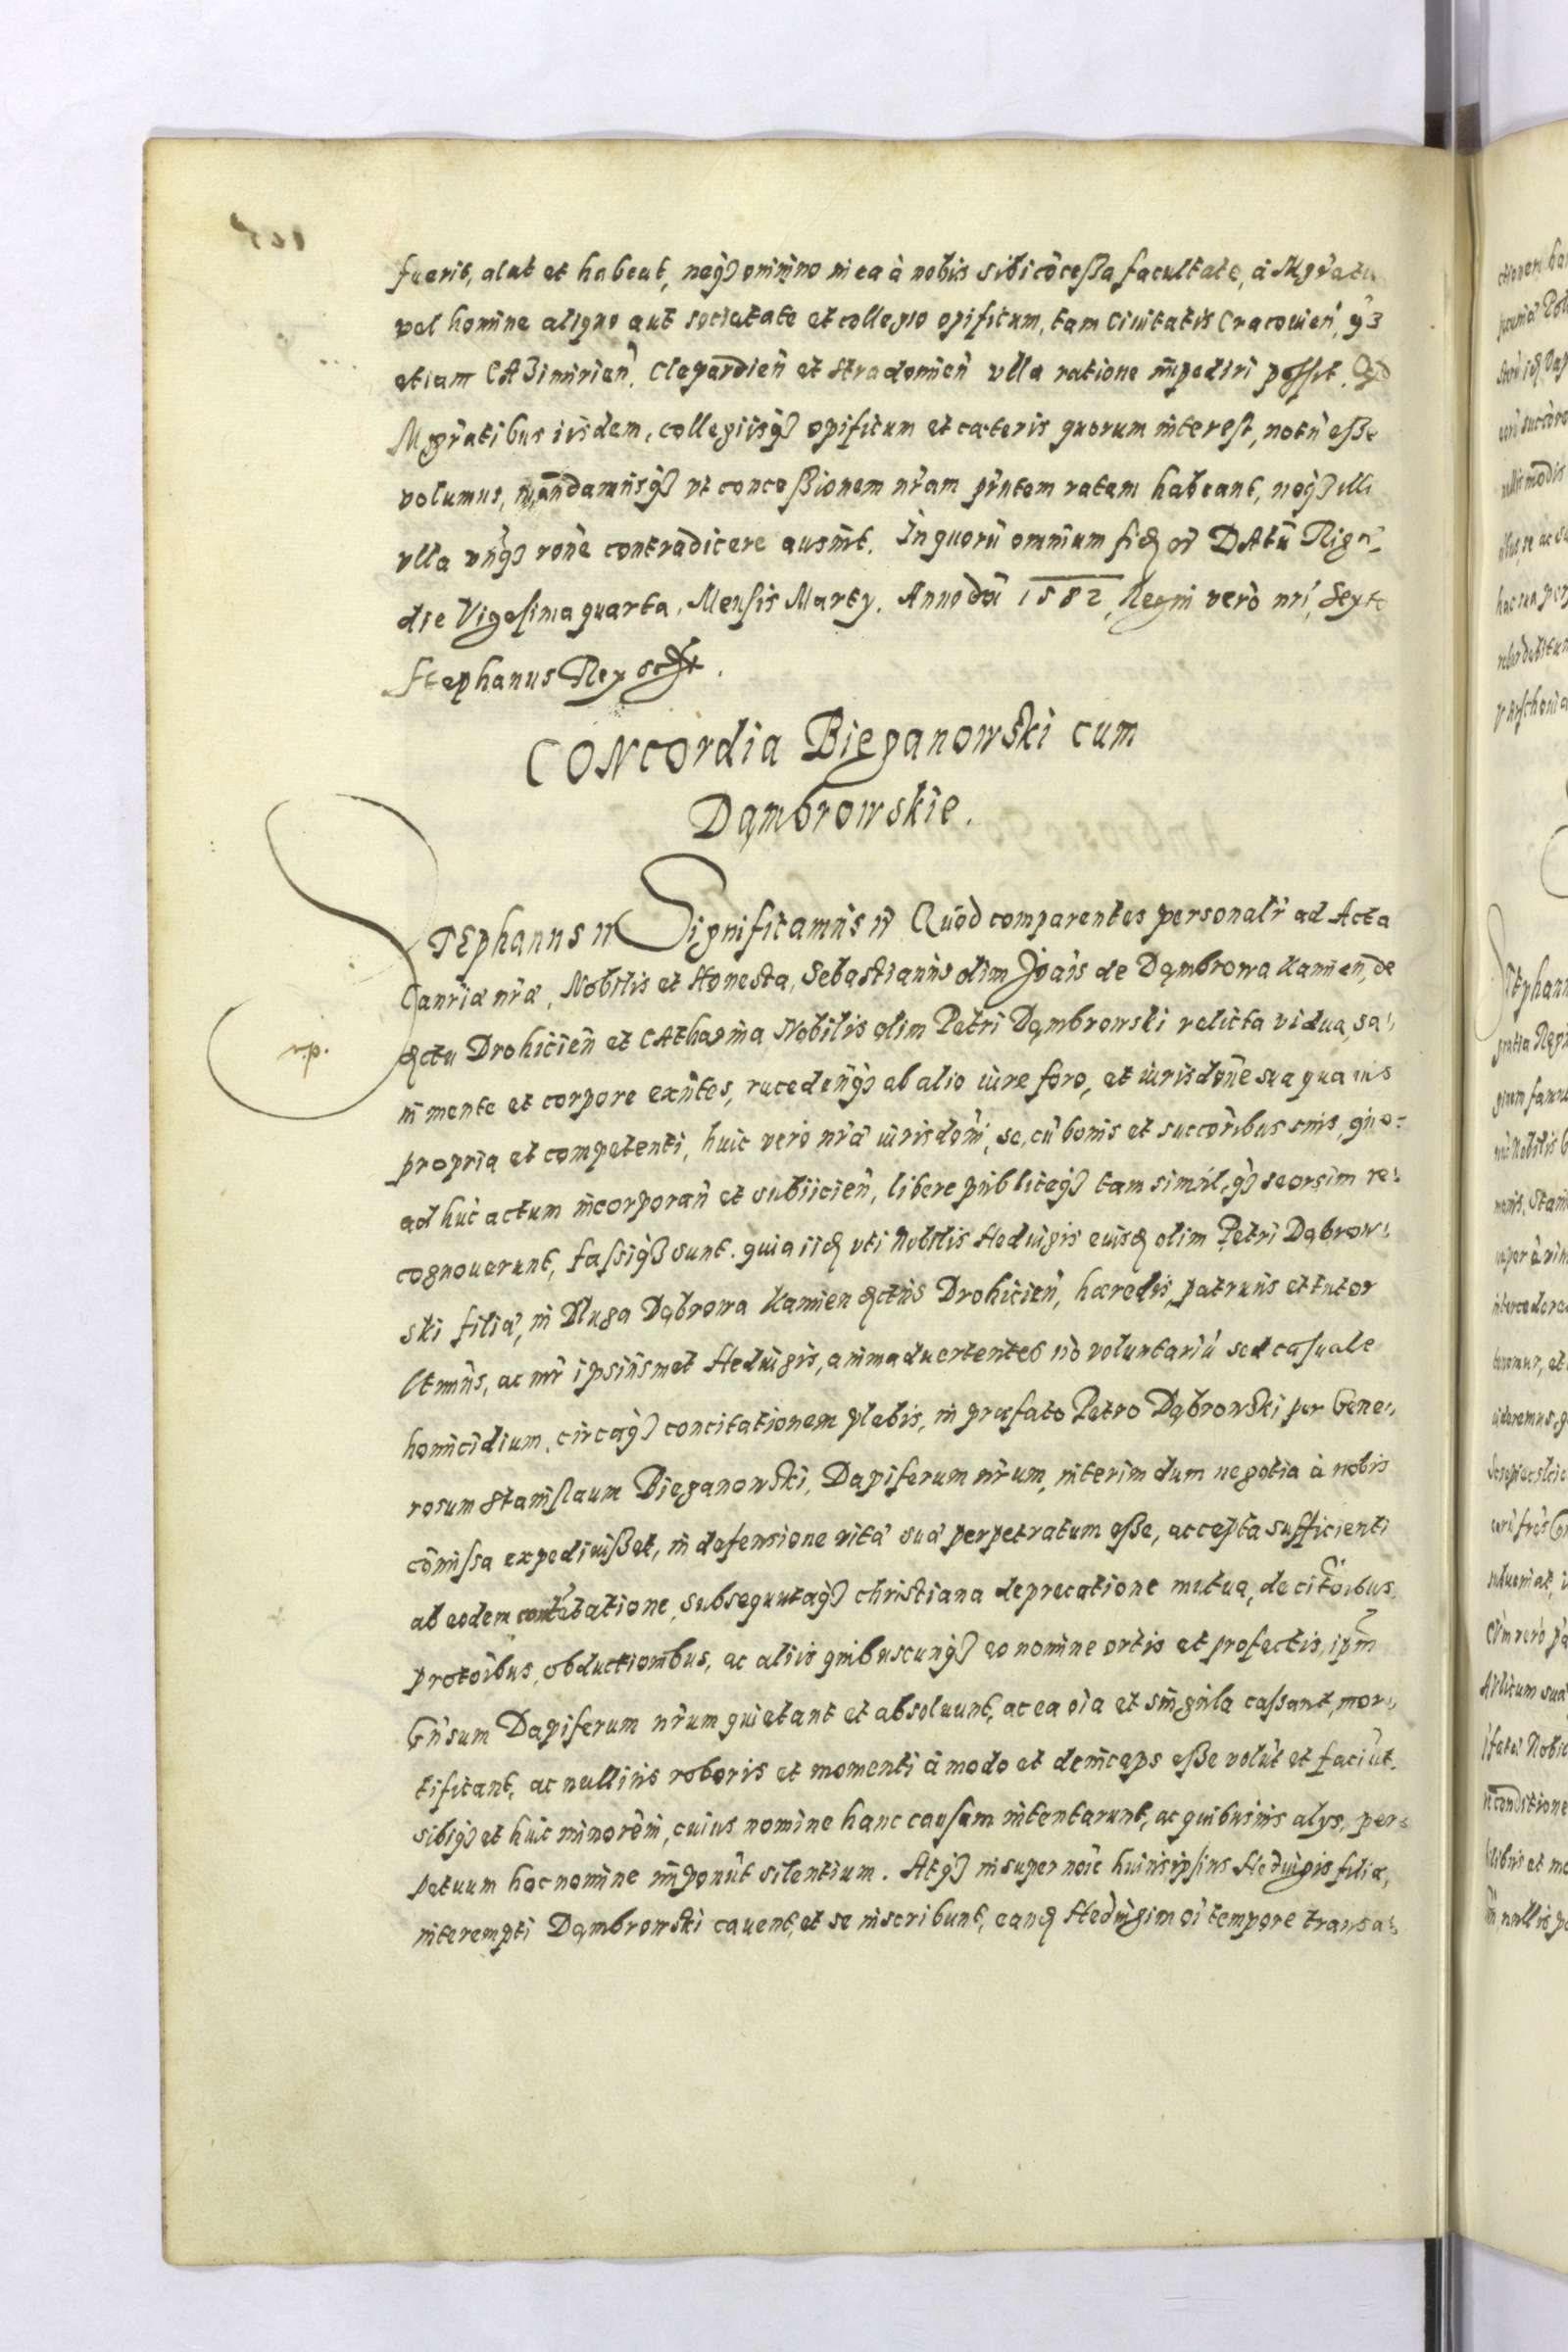 fuerit, alat et habeat, neq₃ omnino in ea à nobis sibi cõcessa facultate, à Mgratu
vel homine aliquo aut societate et collegio opificum, tam Ciuitatis Cracouien, q₃
etiam CAZimirien, Clepardien et Stradomien vlla ratione impediri possit. Qd
Mgratibus iisdem, collegiisq₃ opificum et cæteris quorum interest, notũ esse
volumus, mandamusq₃ vt concessionem nram pntem ratam habeant, neq₃ illi
vlla vnq₃ rone contradicere ausint. In quorũ omnium fidẽ DAtũ Rigæ,
die Vigesima quarta, Mensis Marty. Anno dñi 1582, Regni verò nri, Sexto
Stephanus Rex sst.
CONcordia Bieganowski cum
Dąmbrowskie.
STEphanus Significamus Quod comparentes personalr ad Acta
Canriæ nræ, Nobilis et Honesta, Sebastianus olim Joais de Dąmbrowa Kamien, de
dctu Drohicien et CAtharina Nobilis olim Petri Dąmbrowski relicta vidua, sa-
ni mente et corpore exntes, recedenq₃ ab alio iure foro, et iurisdone sua quauis
r.p.
propria et competenti, huic verò nræ iurisdoni, se, cũ bonis et succoribus suis, quo-
ad huc actum incorporan et subiicien, libere publiceq₃ tam simul, q₃ seorsim re-
cognouerunt, fassiq₃ sunt. quia iidẽ vti Nobilis Heduigis eiusdẽ olim Petri Dąbrow-
ski filiæ, in Dluga Dąbrowa Kamien dctus Drohicien, hæredis, patruus et tutor
ltimus, ac mr ipsiusmet Heduigis, animaduertentes nõ voluntariũ sed casuale
homicidium, circaq₃ concitationem plebis, in præfato Petro Dąbrowski per Gene-
rosum Stanislaum Bieganowski, Dapiferum nrum, interim dum negotia à nobis
cõmissa expediuisset, in defensione vitæ suæ perpetratum esse, accepta sufficienti
ab eodem contẽtatione, subsequutaq₃ christiana deprecatione mutua, de citoibus
protoibus, obductionibus, ac aliis quibuscunq₃ eo nomine ortis et profectis, ipm
Gnsum Dapiferum nrum quietant et absoluunt, ac ea oia et singula cassant, mor-
tificant, ac nullius roboris et momenti à modo et deinceps esse volũt et faciũt.
sibiq₃ et huic minoreni, cuius nomine hanc causam intentarunt, ac quibusuis alys, per-
petuum hoc nomine imponũt silentium. Atq₃ insuper noie huius ipsius Heduigis filiæ,
interempti Dąmbrowski cauent, et se inscribunt, eandẽ Heduigim oi tempore transa-